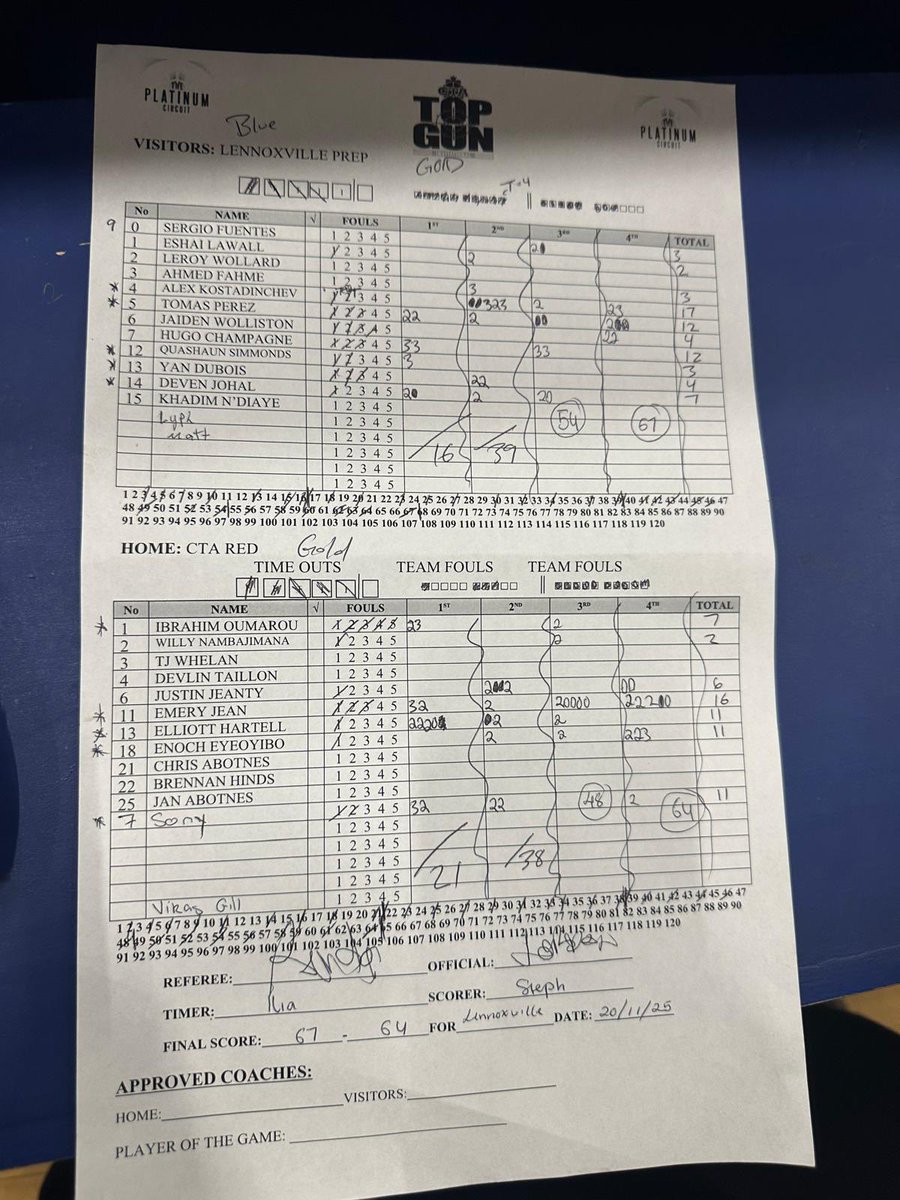 THE PLATINUM CIRCUIT
TOP GUN
THE PLATINUM CIRCUIT
Blue
VISITORS: LENNOXVILLE PREP
Gold
T-4
No NAME √ FOULS 1ST 2ND 3RD 4TH TOTAL
9
0 SERGIO FUENTES 1 2 3 4 5
1 ESHAI LAWALL 1 2 3 4 5 2 3
2 LEROY WOLLARD 1 2 3 4 5 2 2
3 AHMED FAHME 1 2 3 4 5
* 4 ALEX KOSTADINCHEV 1 2 3 4 5 3 3
* 5 TOMAS PEREZ 1 2 3 4 5 323 2 23 17
6 JAIDEN WOLLISTON 1 2 3 4 5 22 2 00 200 12
7 HUGO CHAMPAGNE 1 2 3 4 5 22 4
* 12 QUASHAUN SIMMONDS 1 2 3 4 5 33 33 12
* 13 YAN DUBOIS 1 2 3 4 5 3 3
* 14 DEVEN JOHAL 1 2 3 4 5 22 4
15 KHADIM N'DIAYE 1 2 3 4 5 20 2 20 7
Lyph 1 2 3 4 5 54 67
Matt 1 2 3 4 5
1 2 3 4 5 /16 /39
1 2 3 4 5
1 2 3 4 5
1 2 3 4 5 6 7 8 9 10 11 12 13 14 15 16 17 18 19 20 21 22 23 24 25 26 27 28 29 30 31 32 33 34 35 36 37 38 39 40 41 42 43 44 45 46 47
48 49 50 51 52 53 54 55 56 57 58 59 60 61 62 63 64 65 66 67 68 69 70 71 72 73 74 75 76 77 78 79 80 81 82 83 84 85 86 87 88 89 90
91 92 93 94 95 96 97 98 99 100 101 102 103 104 105 106 107 108 109 110 111 112 113 114 115 116 117 118 119 120
HOME: CTA RED Gold
TIME OUTS TEAM FOULS TEAM FOULS
No NAME √ FOULS 1ST 2ND 3RD 4TH TOTAL
* 1 IBRAHIM OUMAROU 1 2 3 4 5 23 2 7
2 WILLY NAMBAJIMANA 1 2 3 4 5 2 2
3 TJ WHELAN 1 2 3 4 5
4 DEVLIN TAILLON 1 2 3 4 5
6 JUSTIN JEANTY 1 2 3 4 5 2002 00 6
* 11 EMERY JEAN 1 2 3 4 5 32 2 20000 22210 16
* 13 ELLIOTT HARTELL 1 2 3 4 5 2220 02 2 11
* 18 ENOCH EYEOYIBO 1 2 3 4 5 2 2 223 11
21 CHRIS ABOTNES 1 2 3 4 5
22 BRENNAN HINDS 1 2 3 4 5
25 JAN ABOTNES 1 2 3 4 5
* 7 Sony 1 2 3 4 5 32 22 48 2 64 11
1 2 3 4 5
1 2 3 4 5
1 2 3 4 5 /21 /38
1 2 3 4 5
Vikas Gill 1 2 3 4 5
1 2 3 4 5 6 7 8 9 10 11 12 13 14 15 16 17 18 19 20 21 22 23 24 25 26 27 28 29 30 31 32 33 34 35 36 37 38 39 40 41 42 43 44 45 46 47
48 49 50 51 52 53 54 55 56 57 58 59 60 61 62 63 64 65 66 67 68 69 70 71 72 73 74 75 76 77 78 79 80 81 82 83 84 85 86 87 88 89 90
91 92 93 94 95 96 97 98 99 100 101 102 103 104 105 106 107 108 109 110 111 112 113 114 115 116 117 118 119 120
REFEREE: OFFICIAL:
TIMER: Ilia SCORER: Steph
FINAL SCORE: 67 - 64 FOR Lennoxville DATE: 20/11/25
APPROVED COACHES:
HOME: VISITORS:
PLAYER OF THE GAME: